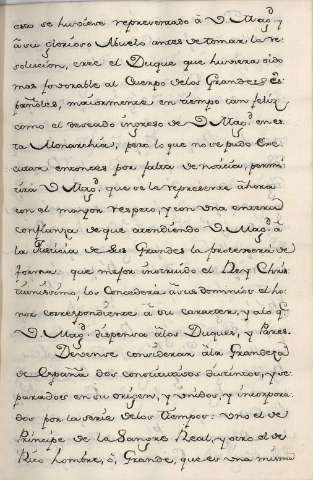 esto se huviese representado à V. Magd. y
à su glorioso Abuelo antes de tomar la re-
solucion, cree el Duque que huviera sido
mas favorable al Cuerpo de los Grandes Es-
pañoles, maiormente en tiempo tan feliz
como el deseado ingreso de V. Magd. en es-
ta Monarchia, pero lo que no se pudo exe-
cutar entonces por falta de noticia, permi-
tirá V. Magd. que os le represente ahora
con el mayor respeto, y con una entera
confianza de que atendiendo V. Magd. à
la Justicia de sus Grandes la protexerá de
forma que mejor instruido el Rey Chris-
tianisimo, los Concederá à sus dominios el ho-
nor correspondiente à su caracter, y a lo q.
V. Magd. dispensa a los Duques, y Pares.
Devense considerar à la Grandeza
de España dos constitutivos distintos, y se-
parados en su origen, y unidos, y incorpora-
dos por la serie de los tiempos: uno el de
Principe de la Sangre Real, y otro el de
Rico hombre, ò, Grande, que es una misma